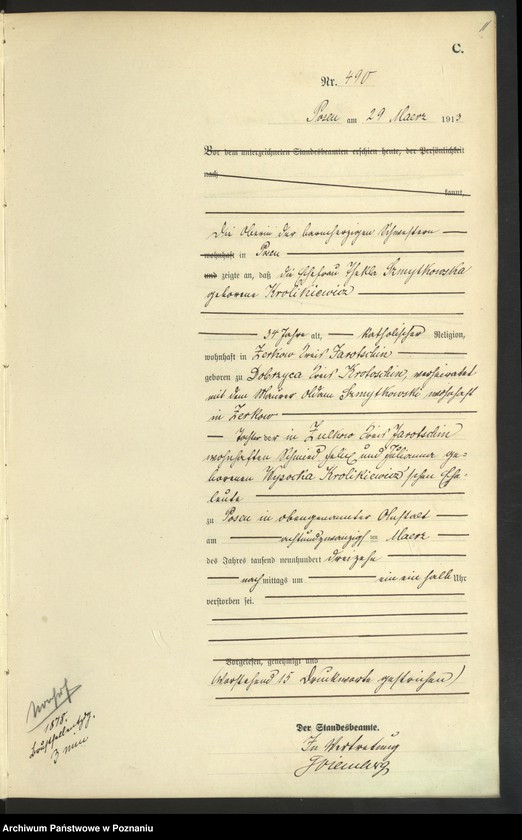 11
C.
Nr. 490
Posen am 29 Maerz 1913
Vor dem unterzeichneten Standesbeamten erschien heute, der Persönlichkeit
nach
kannt,
die Oberin der barmherzigen Schwestern
wohnhaft in Posen
und zeigte an, daß die Ehefrau Thekla Szmytkowska
geborene Krolikiewicz
34 Jahre alt, katholischer Religion,
wohnhaft in Zerkow Kreis Jarotschin
geboren zu Dobrzyca Kreis Krotoschin, verheiratet
mit dem Maurer Adam Szmytkowski wohnhaft
in Zerkow
Tochter der in Zulkow Kreis Jarotschin
wohnhaften Schmied Felix und Julianna ge-
borenen Wysocka Krolikiewicz'schen Ehe-
leute
zu Posen in obengenannter Anstalt
am achtundzwanzigsten Maerz
des Jahres tausend neunhundert dreizehn
nachmittags um ein ein halb Uhr
verstorben sei.
Vorgelesen, genehmigt und
(Vorstehend 15 Druckworte gestrichen)
Der Standesbeamte.
In Vertretung
1878.
Archiwum Państwowe w Poznaniu